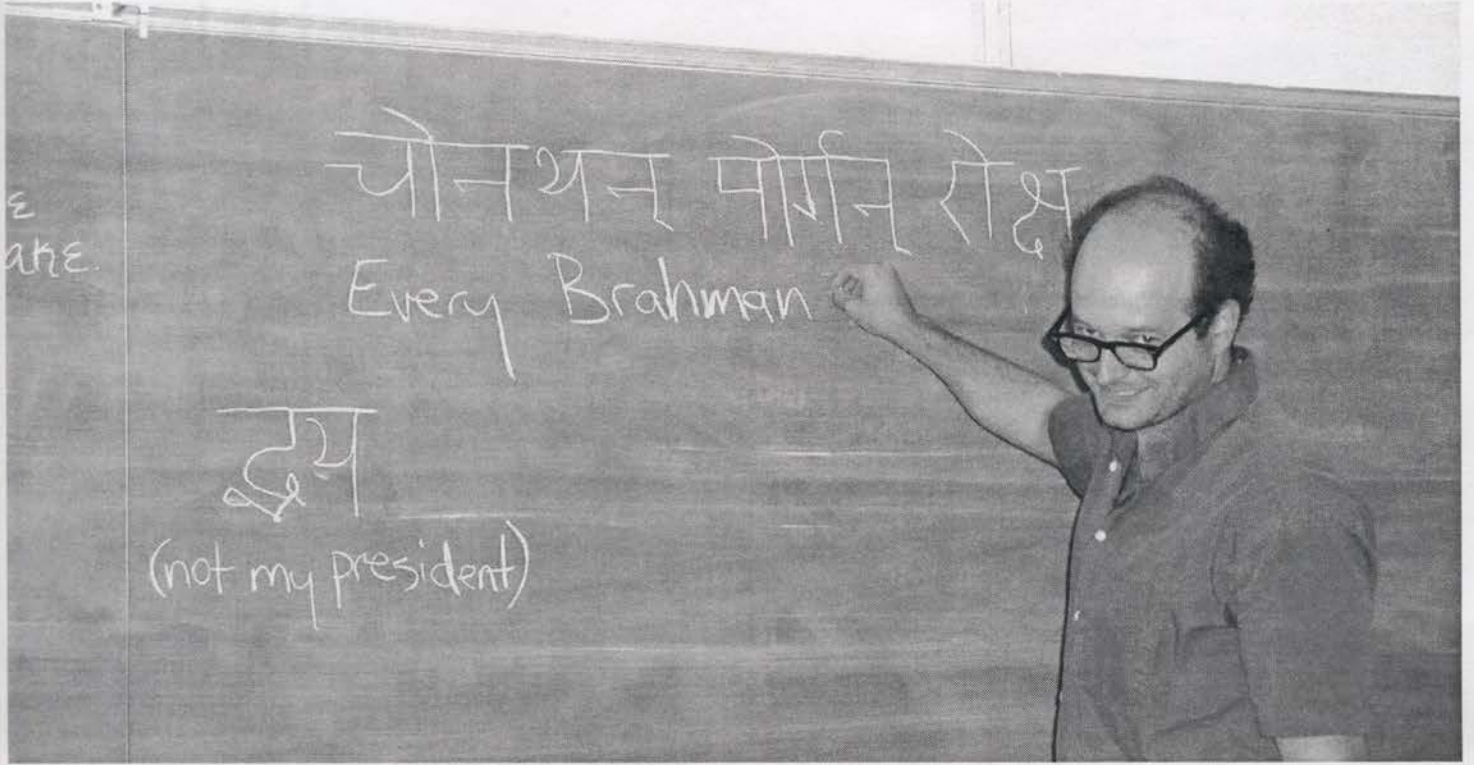 ε
akε.
चोनथन् पोर्गन् रोक्ष
Every Brahman
द्वय
(not my president)